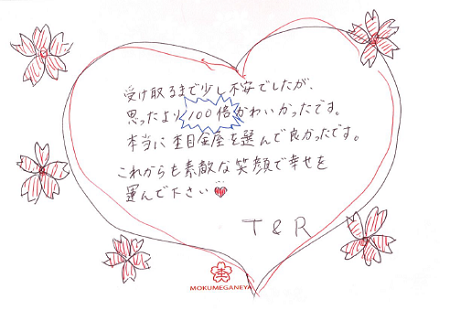 受け取るまで少し不安でしたが、
思ったより100倍かわいかったです。
本当に杢目金屋を選んで良かったです。
これからも素敵な笑顔で幸せを
運んで下さい
T & R
MOKUMEGANEYA